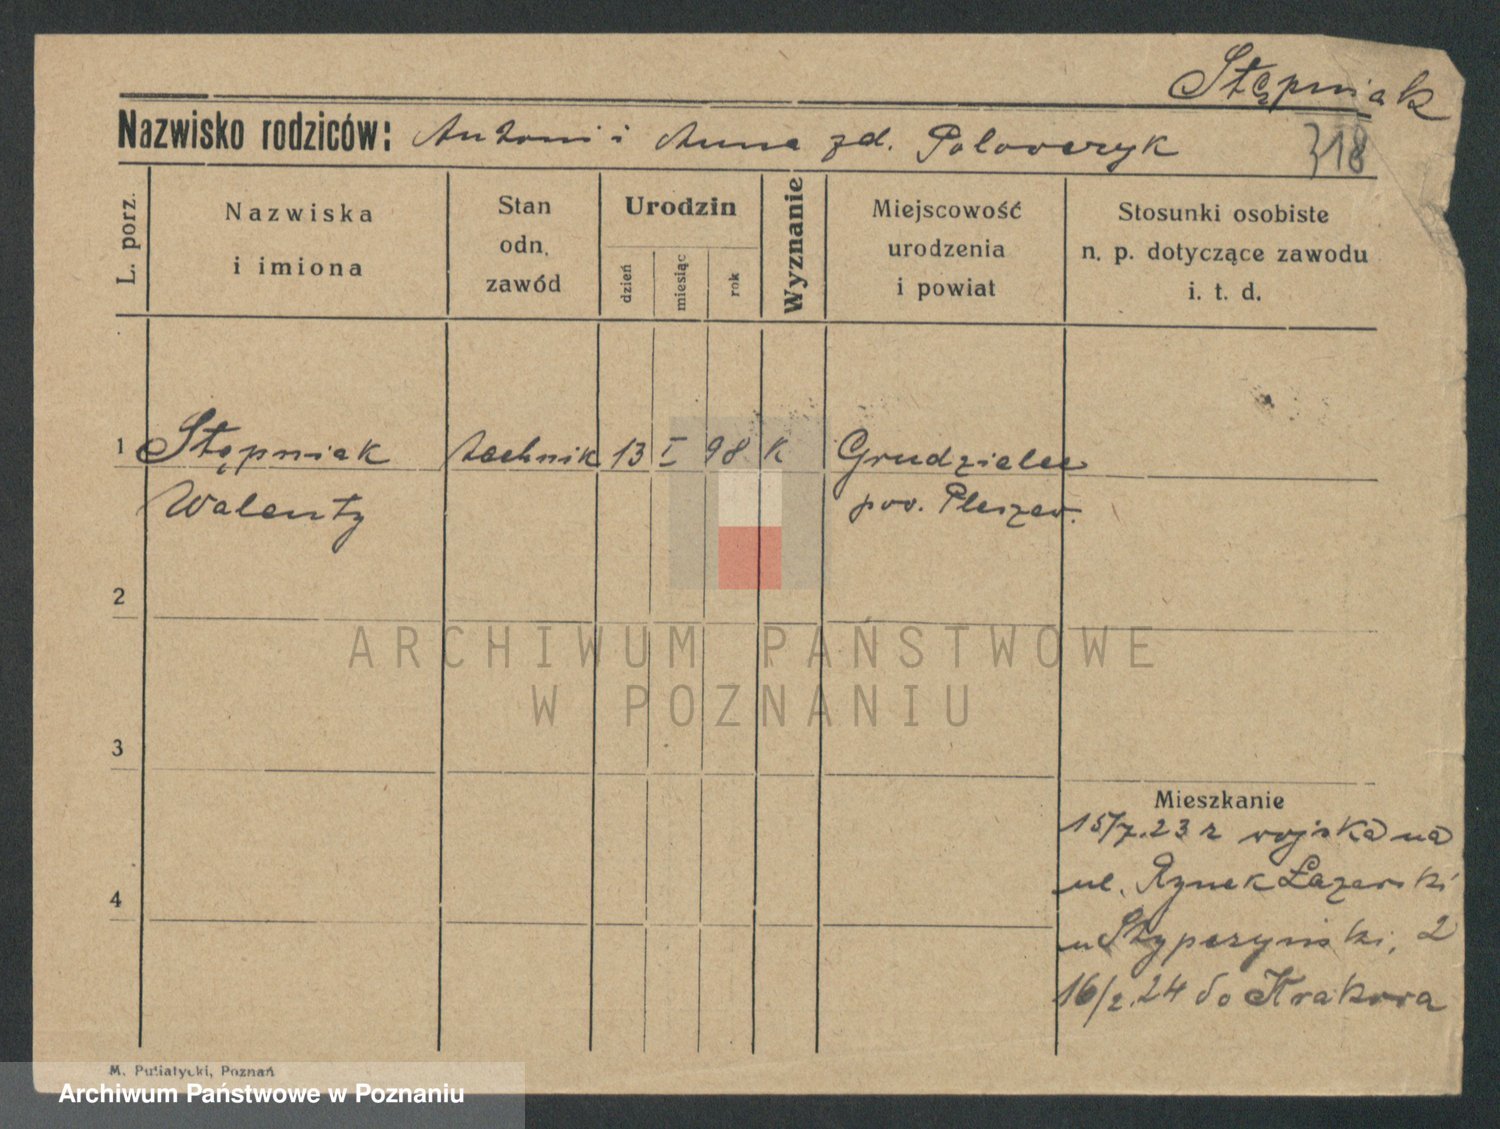 Stępniak
Nazwisko rodziców: Antoni i Anna zd. Polowczyk
318
L. porz.
Nazwiska
i imiona
Stan
odn.
zawód
Urodzin
dzień
miesiąc
rok
Wyznanie
Miejscowość
urodzenia
i powiat
Stosunki osobiste
n. p. dotyczące zawodu
i. t. d.
1 Stępniak technik 13 I 98 K Grudzielec
Walenty pow. Pleszew.
2
ARCHIWUM PAŃSTWOWE
W POZNANIU
3
Mieszkanie
15/7.23 z wojska na
4
ul. Rynek Łazarski
u 2
16/2.24 do Krakowa
M. Putiatycki, Poznań
Archiwum Państwowe w Poznaniu